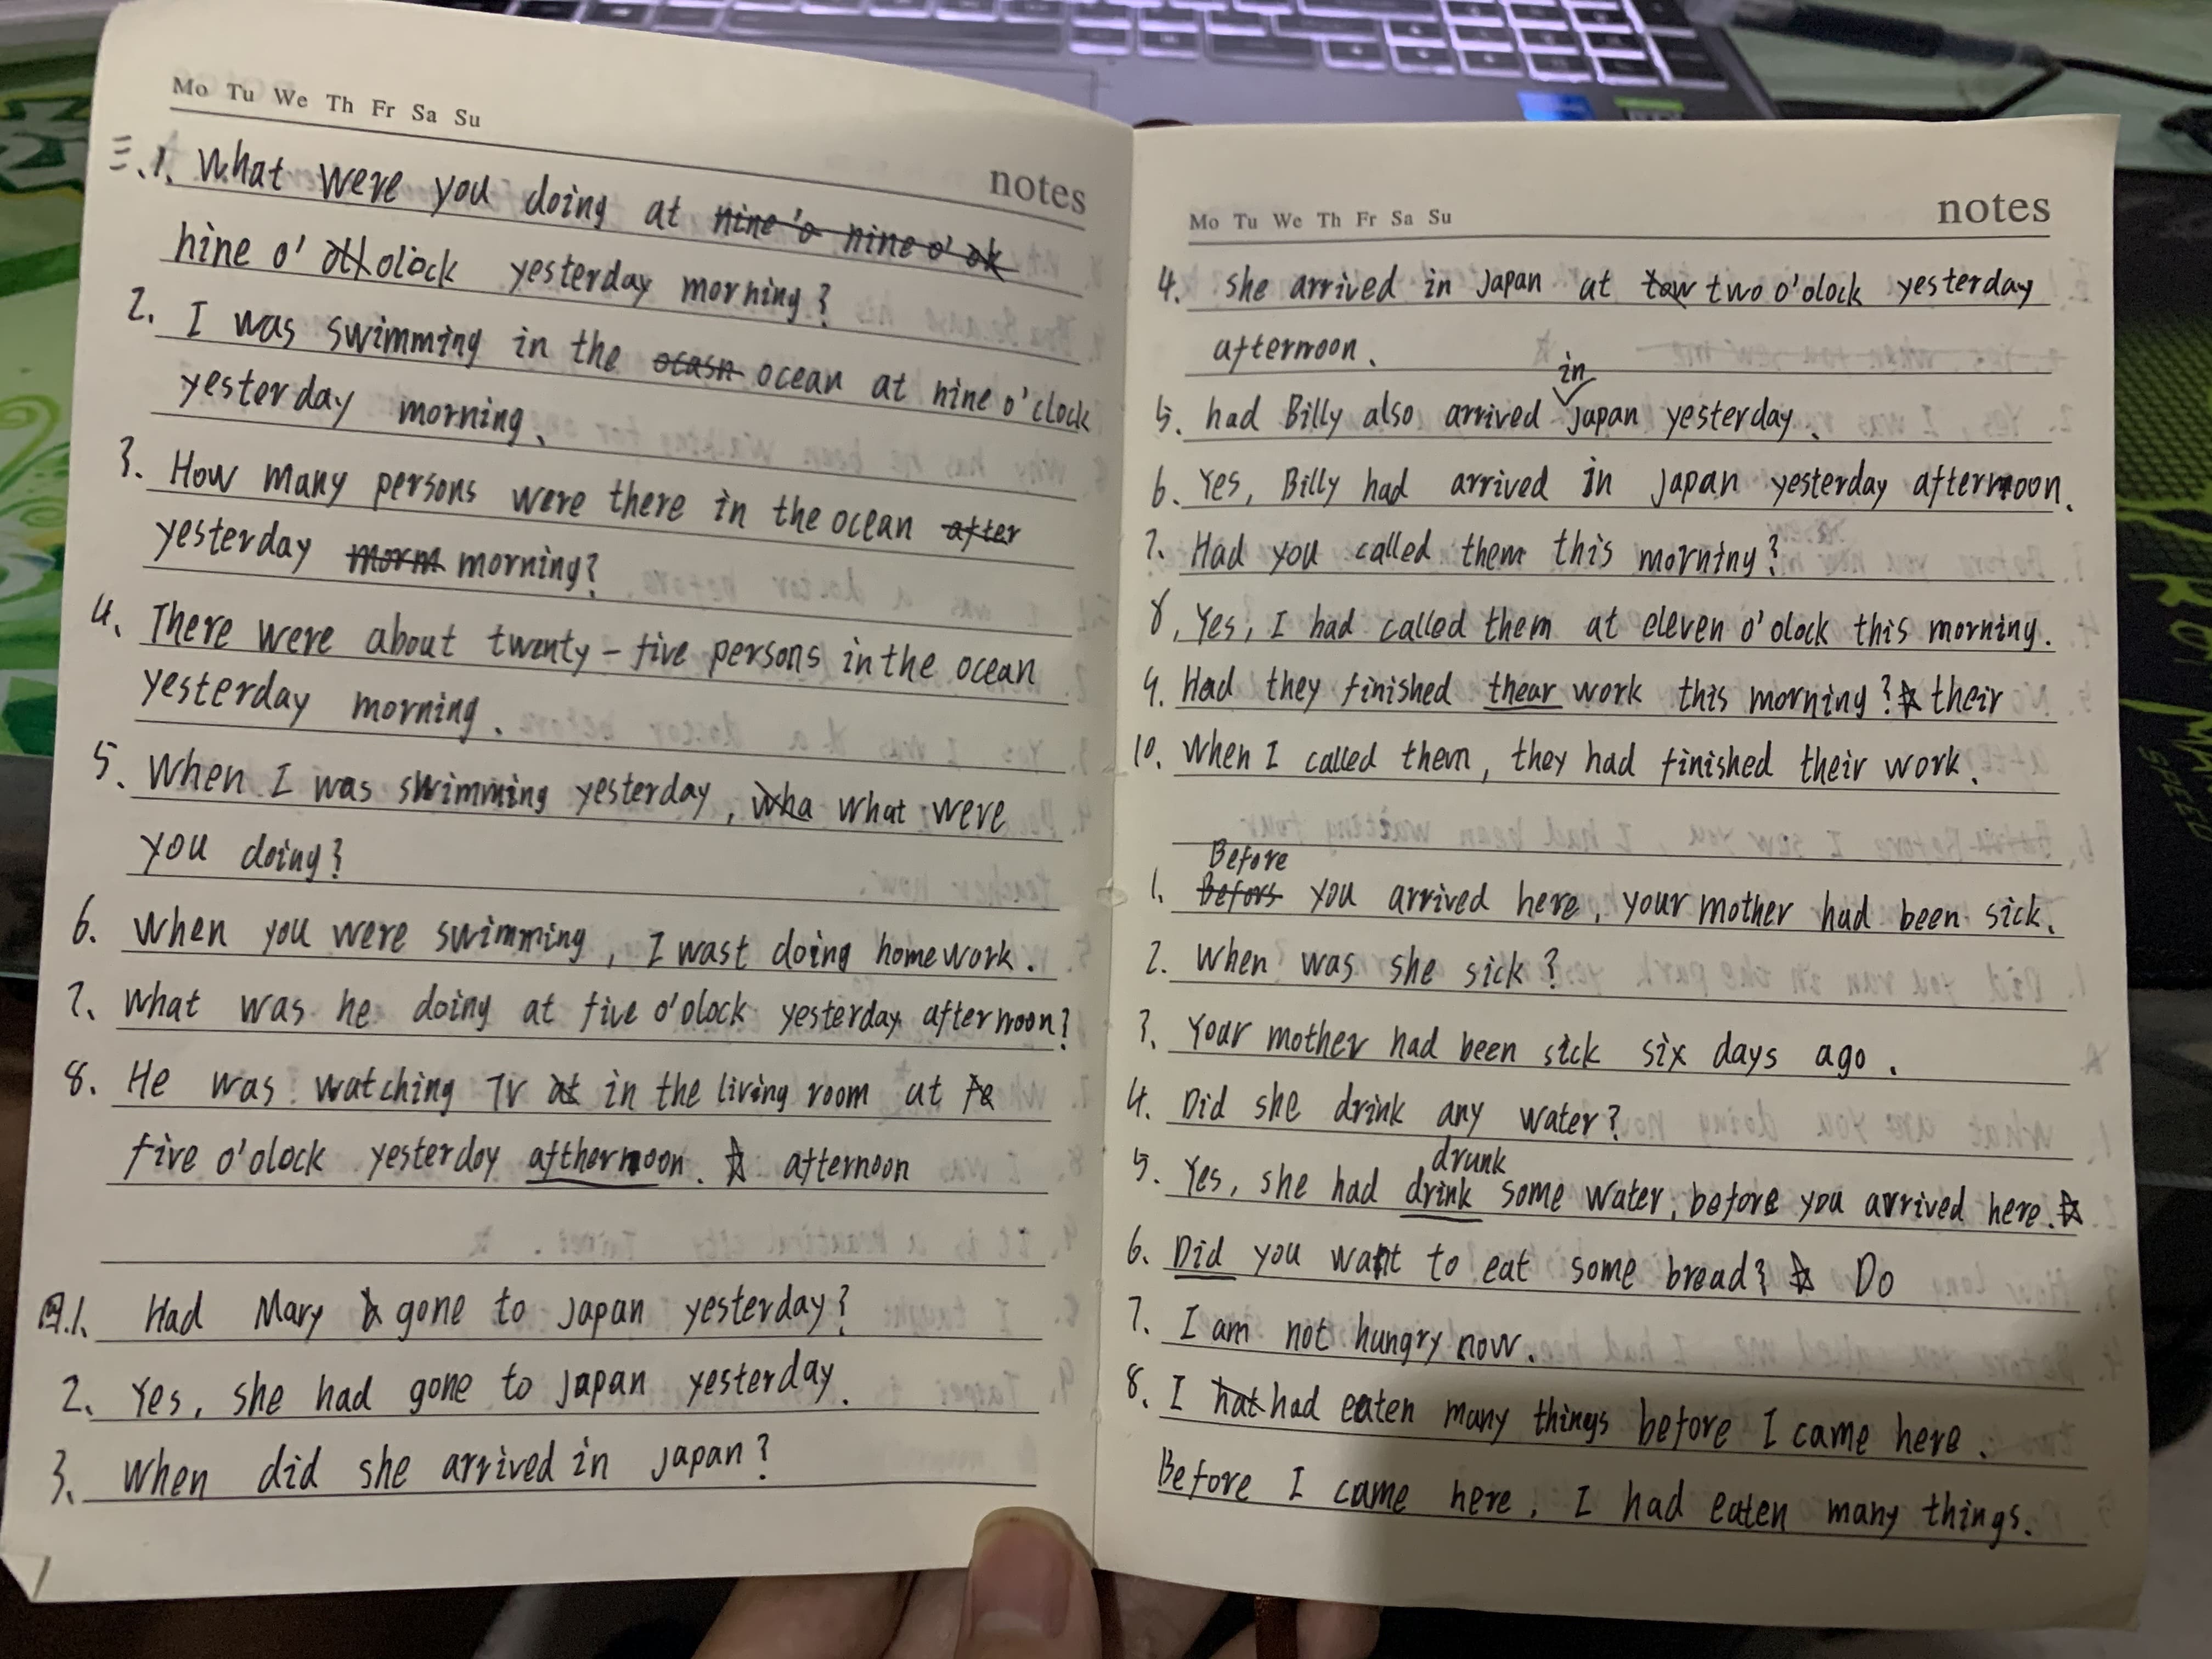 Mo Tu We Th Fr Sa Su
notes
三.1. What were you doing at nine'o nine o' ok
nine o' olock yesterday morning?
2. I was swimming in the ocasn ocean at nine o'clock
yesterday morning.
3. How many persons were there in the ocean after
yesterday morm morning?
4. There were about twenty-five persons in the ocean
yesterday morning.
5. When I was swimming yesterday, wha what were
you doing?
6. When you were swimming, I wast doing homework.
7. What was he doing at five o'olock yesterday afternoon?
8. He was watching TV at in the living room at fe
five o'olock yesterday afthernoon. ☆ afternoon
四.1. Had Mary gone to Japan yesterday?
2. Yes, she had gone to Japan yesterday.
3. When did she arrived in Japan?
Mo Tu We Th Fr Sa Su
notes
4. She arrived in Japan at tow two o'olock yesterday
afternoon.
in
5. had Billy also arrived Japan yesterday.
6. Yes, Billy had arrived in Japan yesterday afternoon.
7. Had you called them this morning?
8. Yes, I had called them at eleven o'olock this morning.
9. Had they finished thear work this morning? ☆ their
10. When I called them, they had finished their work.
Before
1. Befors you arrived here, your mother had been sick.
2. When was she sick?
3. Your mother had been sick six days ago.
4. Did she drink any water?
drunk
5. Yes, she had drink some water, before you arrived here. ☆
6. Did you want to eat some bread? ☆ Do
7. I am not hungry now.
8. I hat had eaten many things before I came here.
Before I came here, I had eaten many things.